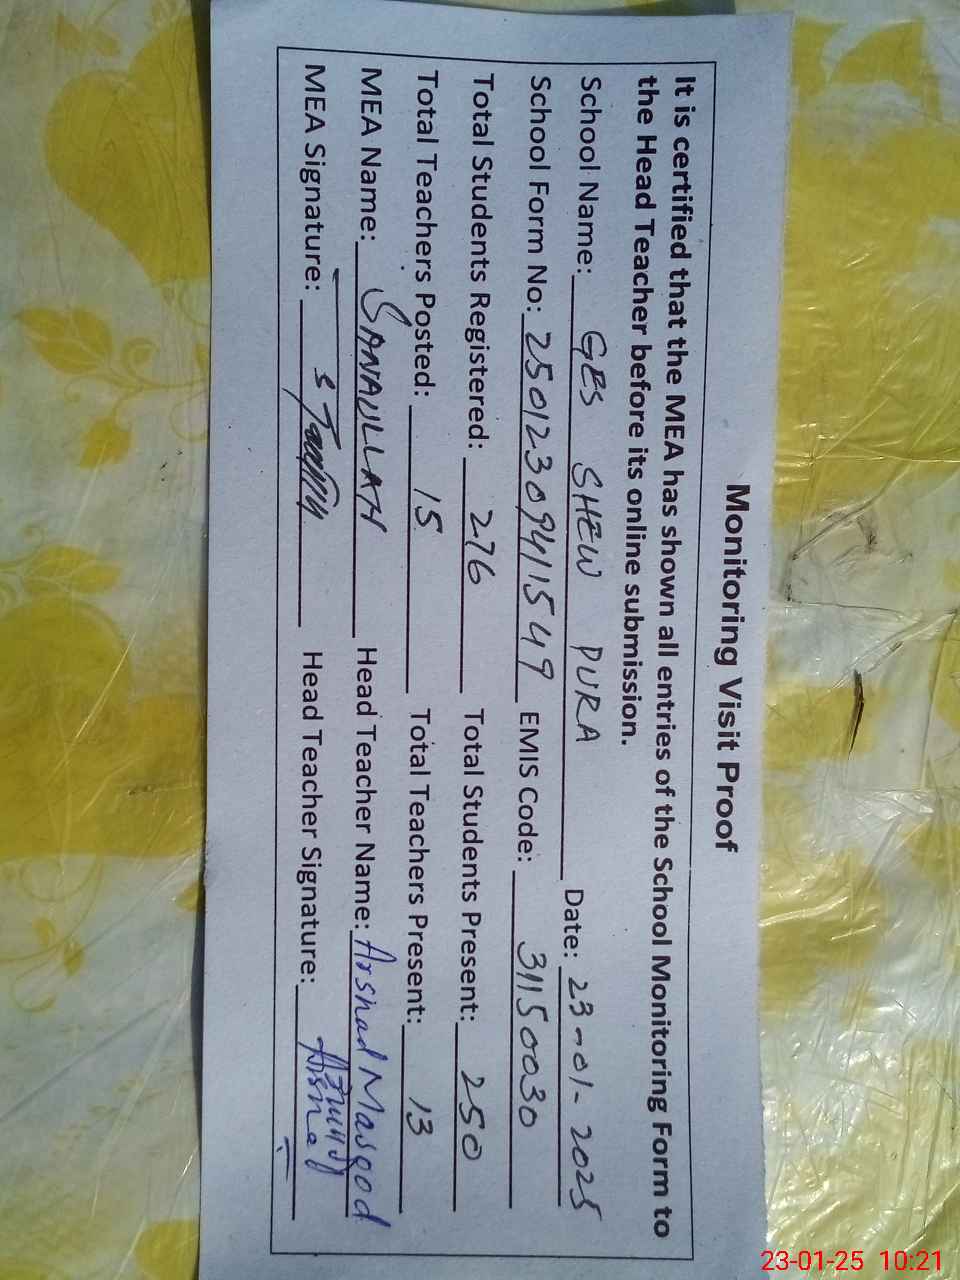 Monitoring Visit Proof
It is certified that the MEA has shown all entries of the School Monitoring Form to
the Head Teacher before its online submission.
School Name: GES SHEW PURA Date: 23-01-2025
School Form No: 25012309411549 EMIS Code: 31150030
Total Students Registered: 276 Total Students Present: 250
Total Teachers Posted: 15 Total Teachers Present: 13
MEA Name: SANAULLAH Head Teacher Name: Arshad Masood
MEA Signature: Head Teacher Signature:
23-01-25 10:21